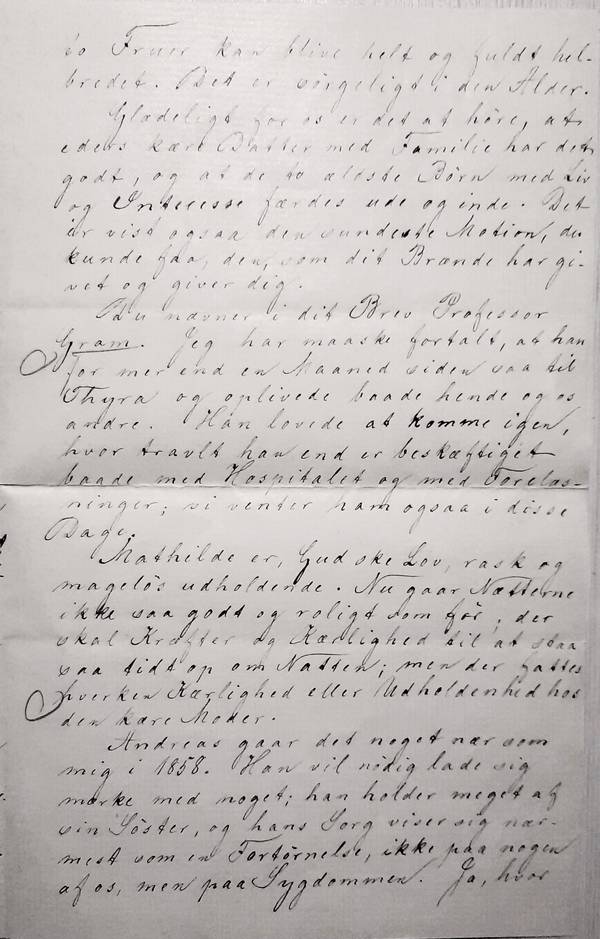 to Fruer kan blive helt og fuldt hel-
bredet. Det er sørgeligt i den Alder.
Glædeligt for os er det at høre, at
eders kære Datter med Familie har det
godt, og at de to ældste Børn med Liv
og Interesse færdes ude og inde. Det
er vist ogsaa den sundeste Motion, du
kunde faa, den, som dit Brænde har gi-
vet og giver dig.
Du nævner i dit Brev Professor
Gram. Jeg har maaske fortalt, at han
for mer end en Maaned siden saa til
Thyra og oplivede baade hende og os
andre. Han lovede at komme igen,
hvor travlt han end er beskæftiget
baade med Hospitalet og med Forelæs-
ninger; vi venter ham ogsaa i disse
Dage.
Mathilde er, Gud ske Lov, rask og
mageløs udholdende. Nu gaar Nætterne
ikke saa godt og roligt som før, der
skal Kræfter og Kærlighed til at staa
saa tidt op om Natten; men der fattes
hverken Kærlighed eller Udholdenhed hos
den kære Moder.
Andreas gaar det noget nær som
mig i 1858. Han vil nødig lade sig
mærke med noget; han holder meget af
sin Søster, og hans Sorg viser sig nær-
mest som en Fortørnelse, ikke paa nogen
af os, men paa Sygdommen. Ja, hvor